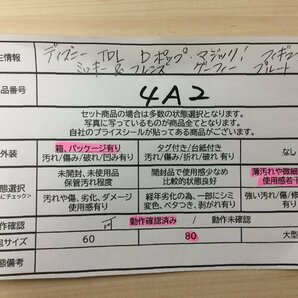 主情報 ディズニー TDL Dポップ・マジック! フィギュ
ミッキー & フレンズ グーフィー プルート
品番号 4A2
セット商品の場合は多数の状態選択となります。
写真に写っているものが商品全てとなります。
自社のプライスシールが貼ってある商品がございます。
外装 箱、パッケージ有り タグ付き/台紙付き な
汚れ/傷み/破れ/凹み有り 汚れ/傷み/折れ 有り
状態選択 未開封、未使用品 開封品で使用感少なめ 薄汚れや微細
にチェック) 保管汚れ程度 比較的状態良好 使用感若干
汚れや傷、劣化、ダメージ 経年劣化の為、一部にシミ 強い汚れ/傷
使用感有り 変色、ベタつき、剥がれ有り
動作確認 可 動作確認済み / 動作未確認
包サイズ 60 80 大型
状態備考